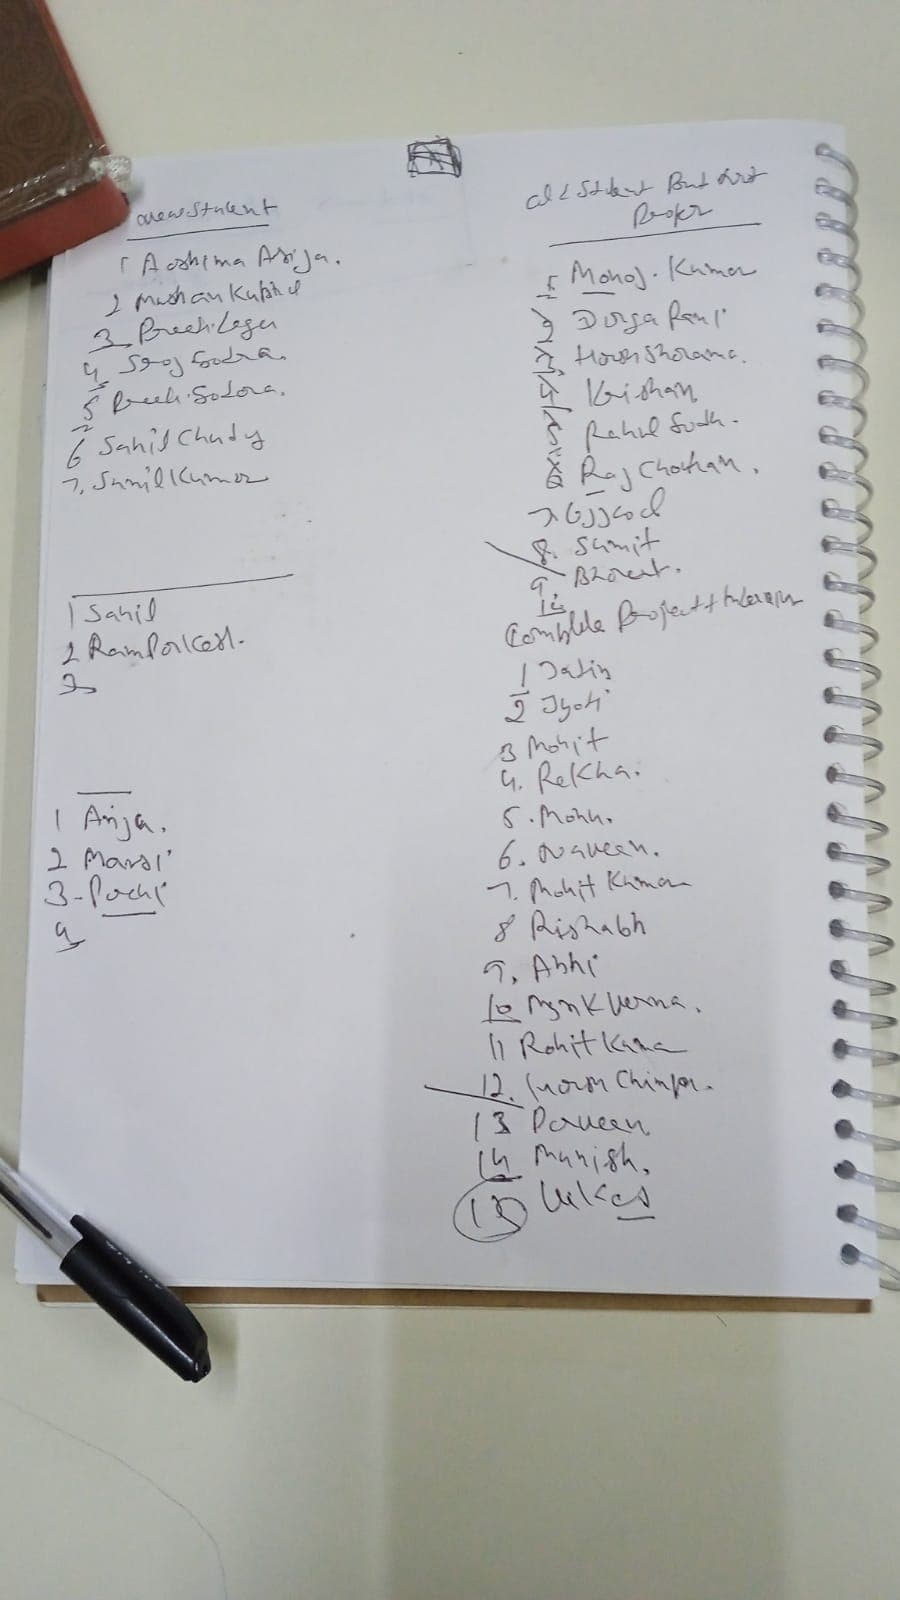 new Student
1 Aashima Arija.
2 Muskan
3 Preeti
4 Sooj Sodra.
5 Preeti Sodora.
6 Sahil Chudy
7. Sunil Kumar
1 Sahil
2 Ram
3
1 Arija.
2 Mansi
3-Pachi
4
old Student But not
1 Manoj. Kumar
2 Durga Rani
3. Harsh Sharama.
4 Krishan
5 Rahul Sodh.
6 Raj Chouhan.
7
8. Sumit
9. Bharat.
10
Complete Project +
1 Jatin
2 Jyoti
3 Mohit
4. Rekha.
5. Monu.
6. Naveen.
7. Mohit Kumar
8 Rishabh
9. Abhi
10 Verma.
11 Rohit Kuma
12. Chimpa.
13 Parveen
14 Manish.
15 Vikas